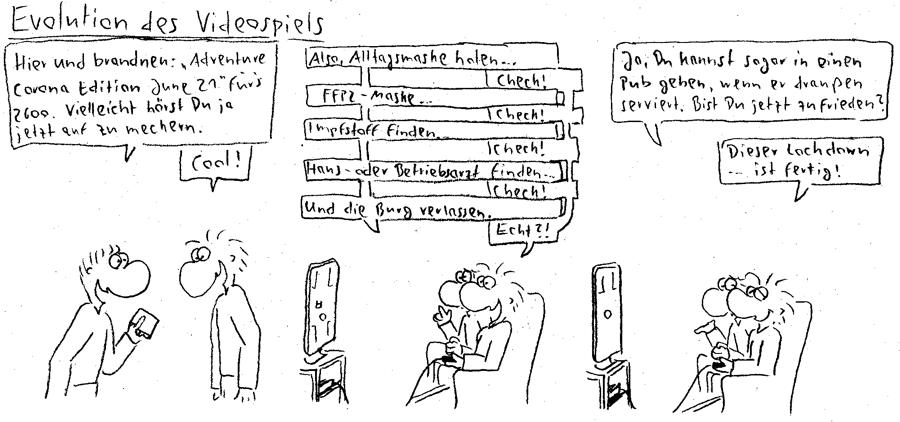 Evolution des Videospiels
Hier und brandneu: „Adventure
Corona Edition June 21" für's
2600. Vielleicht hörst Du ja
jetzt auf zu meckern.
Cool!
Also, Alltagsmaske holen...
Check!
FFP2-Maske...
Check!
Impfstoff finden...
Check!
Haus- oder Betriebsarzt finden...
Check!
Und die Burg verlassen.
Echt?!
Ja, Du kannst sogar in einen
Pub gehen, wenn er draußen
serviert. Bist Du jetzt zufrieden?
Dieser Lockdown
... ist fertig!